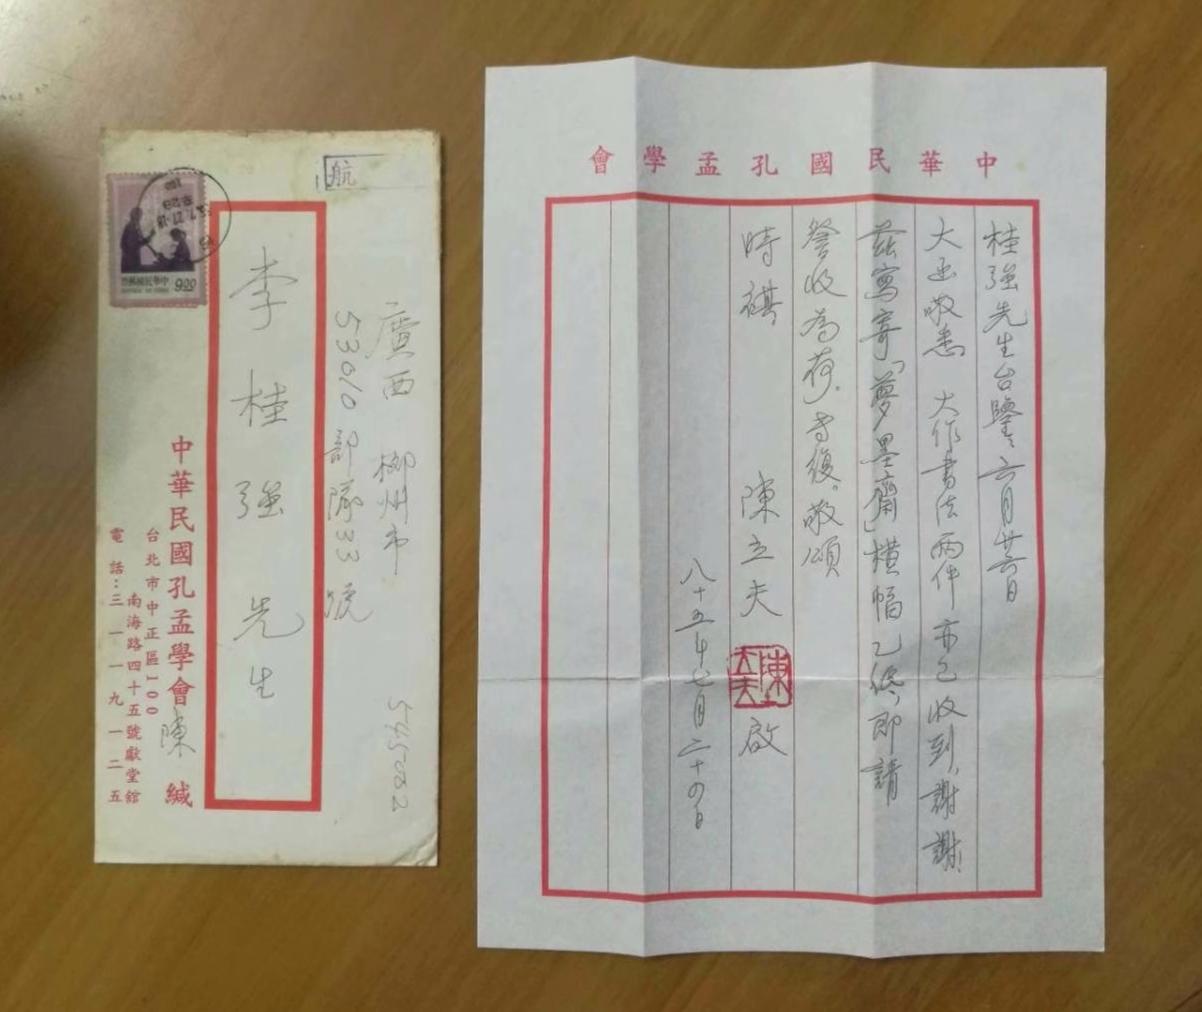 航
廣西 柳州市
53010部隊33號
545002
李桂強先生
中華民國孔孟學會 陳 緘
台北市中正區100
南海路四十五號獻堂館
電話：三一一九一二五
中華民國郵票
9.00
中華民國孔孟學會
桂強先生台鑒：六月廿六日
大函敬悉 大作書法兩件亦已收到，謝謝，
茲寫寄「夢墨齋」橫幅乙紙，即請
詧收為荷。專復。敬頌
時祺
陳立夫 啟
陳立夫
八十五年七月二十四日